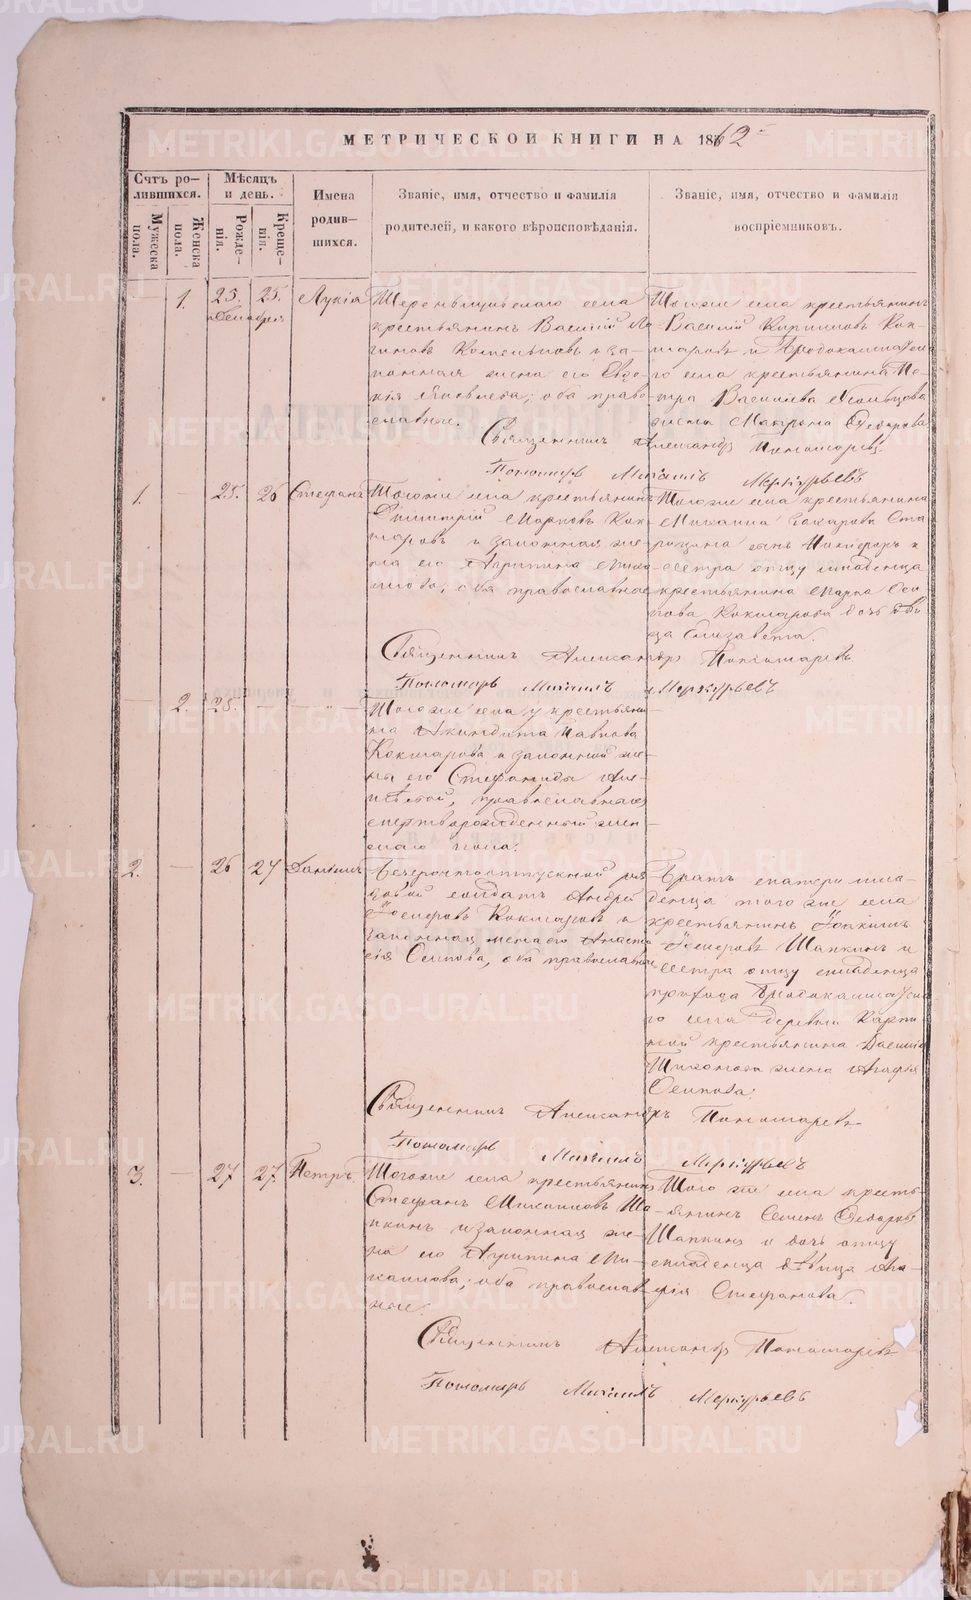 МЕТРИЧЕСКОЙ КНИГИ НА 1862
Счетъ ро-
дившихся.
Мужеска
пола.
Женска
пола.
Мѣсяцъ
и день.
Рожде-
нія.
Креще-
нія.
Имена
родив-
шихся.
Званіе, имя, отчество и фамилія
родителей, и какого вѣроисповѣданія.
Званіе, имя, отчество и фамилія
воспріемниковъ.
1. 25. 25.
Декабря
Лукія
села
крестьянинъ Василій Ло-
гиновъ и за-
конная жена его Евдо-
кія Яковлева; оба право-
славные.
Тогоже села крестьянинъ
Василій Кириловъ Кок-
шаровъ и
го села крестьянина Пе-
тра Васильева
жена Матрона Федорова
Священникъ Александръ Пономаревъ
Пономарь Михаилъ Меркурьевъ
1. - 25. 26 Стефанъ
Тогоже села крестьянинъ
Димитрій Марковъ Кок-
шаровъ и законная же-
на его Агрипина Миха-
йлова, оба православные
Тогоже села крестьянина
Михаила Захарова Ста-
сынъ Никифоръ и
сестра отцу младенца
крестьянина Марка Оси-
пова Кокшарова дочь дѣви-
ца Елизавета.
Священникъ Александръ Пономаревъ
Пономарь Михаилъ Меркурьевъ
- 2. 25. - -
Тогоже села у крестьяни-
на Акиндина Павлова
Кокшарова и законной же-
ны его Стефаниды Але-
православныхъ
мертворожденный жен-
скаго пола.
2. - 26 27 Даніилъ
Безсрочноотпускной ря-
довой солдатъ Андрей
Іосифовъ Кокшаровъ и
законная жена его Анаста-
сія Осипова, оба православные
Братъ матери мла-
денца того же села
крестьянинъ Іоакимъ
Іосифовъ Шапкинъ и
сестра отцу младенца
прихода
го села деревни Карпи-
ной крестьянина Василія
Тихонова жена Агафія
Осипова.
Священникъ Александръ Пономаревъ
Пономарь Михаилъ Меркурьевъ
3. - 27 27. Петръ.
Тогоже села крестьянинъ
Стефанъ Ша-
пкинъ и законная же-
на его Агрипина Ми-
хаилова; оба православ-
ные.
Того же села кресть-
янинъ Семенъ Федоровъ
Шапкинъ и дочь отцу
младенца дѣвица Ага-
фія Стефанова.
Священникъ Александръ Пономаревъ
Пономарь Михаилъ Меркурьевъ
METRIKI.GASO-URAL.RU